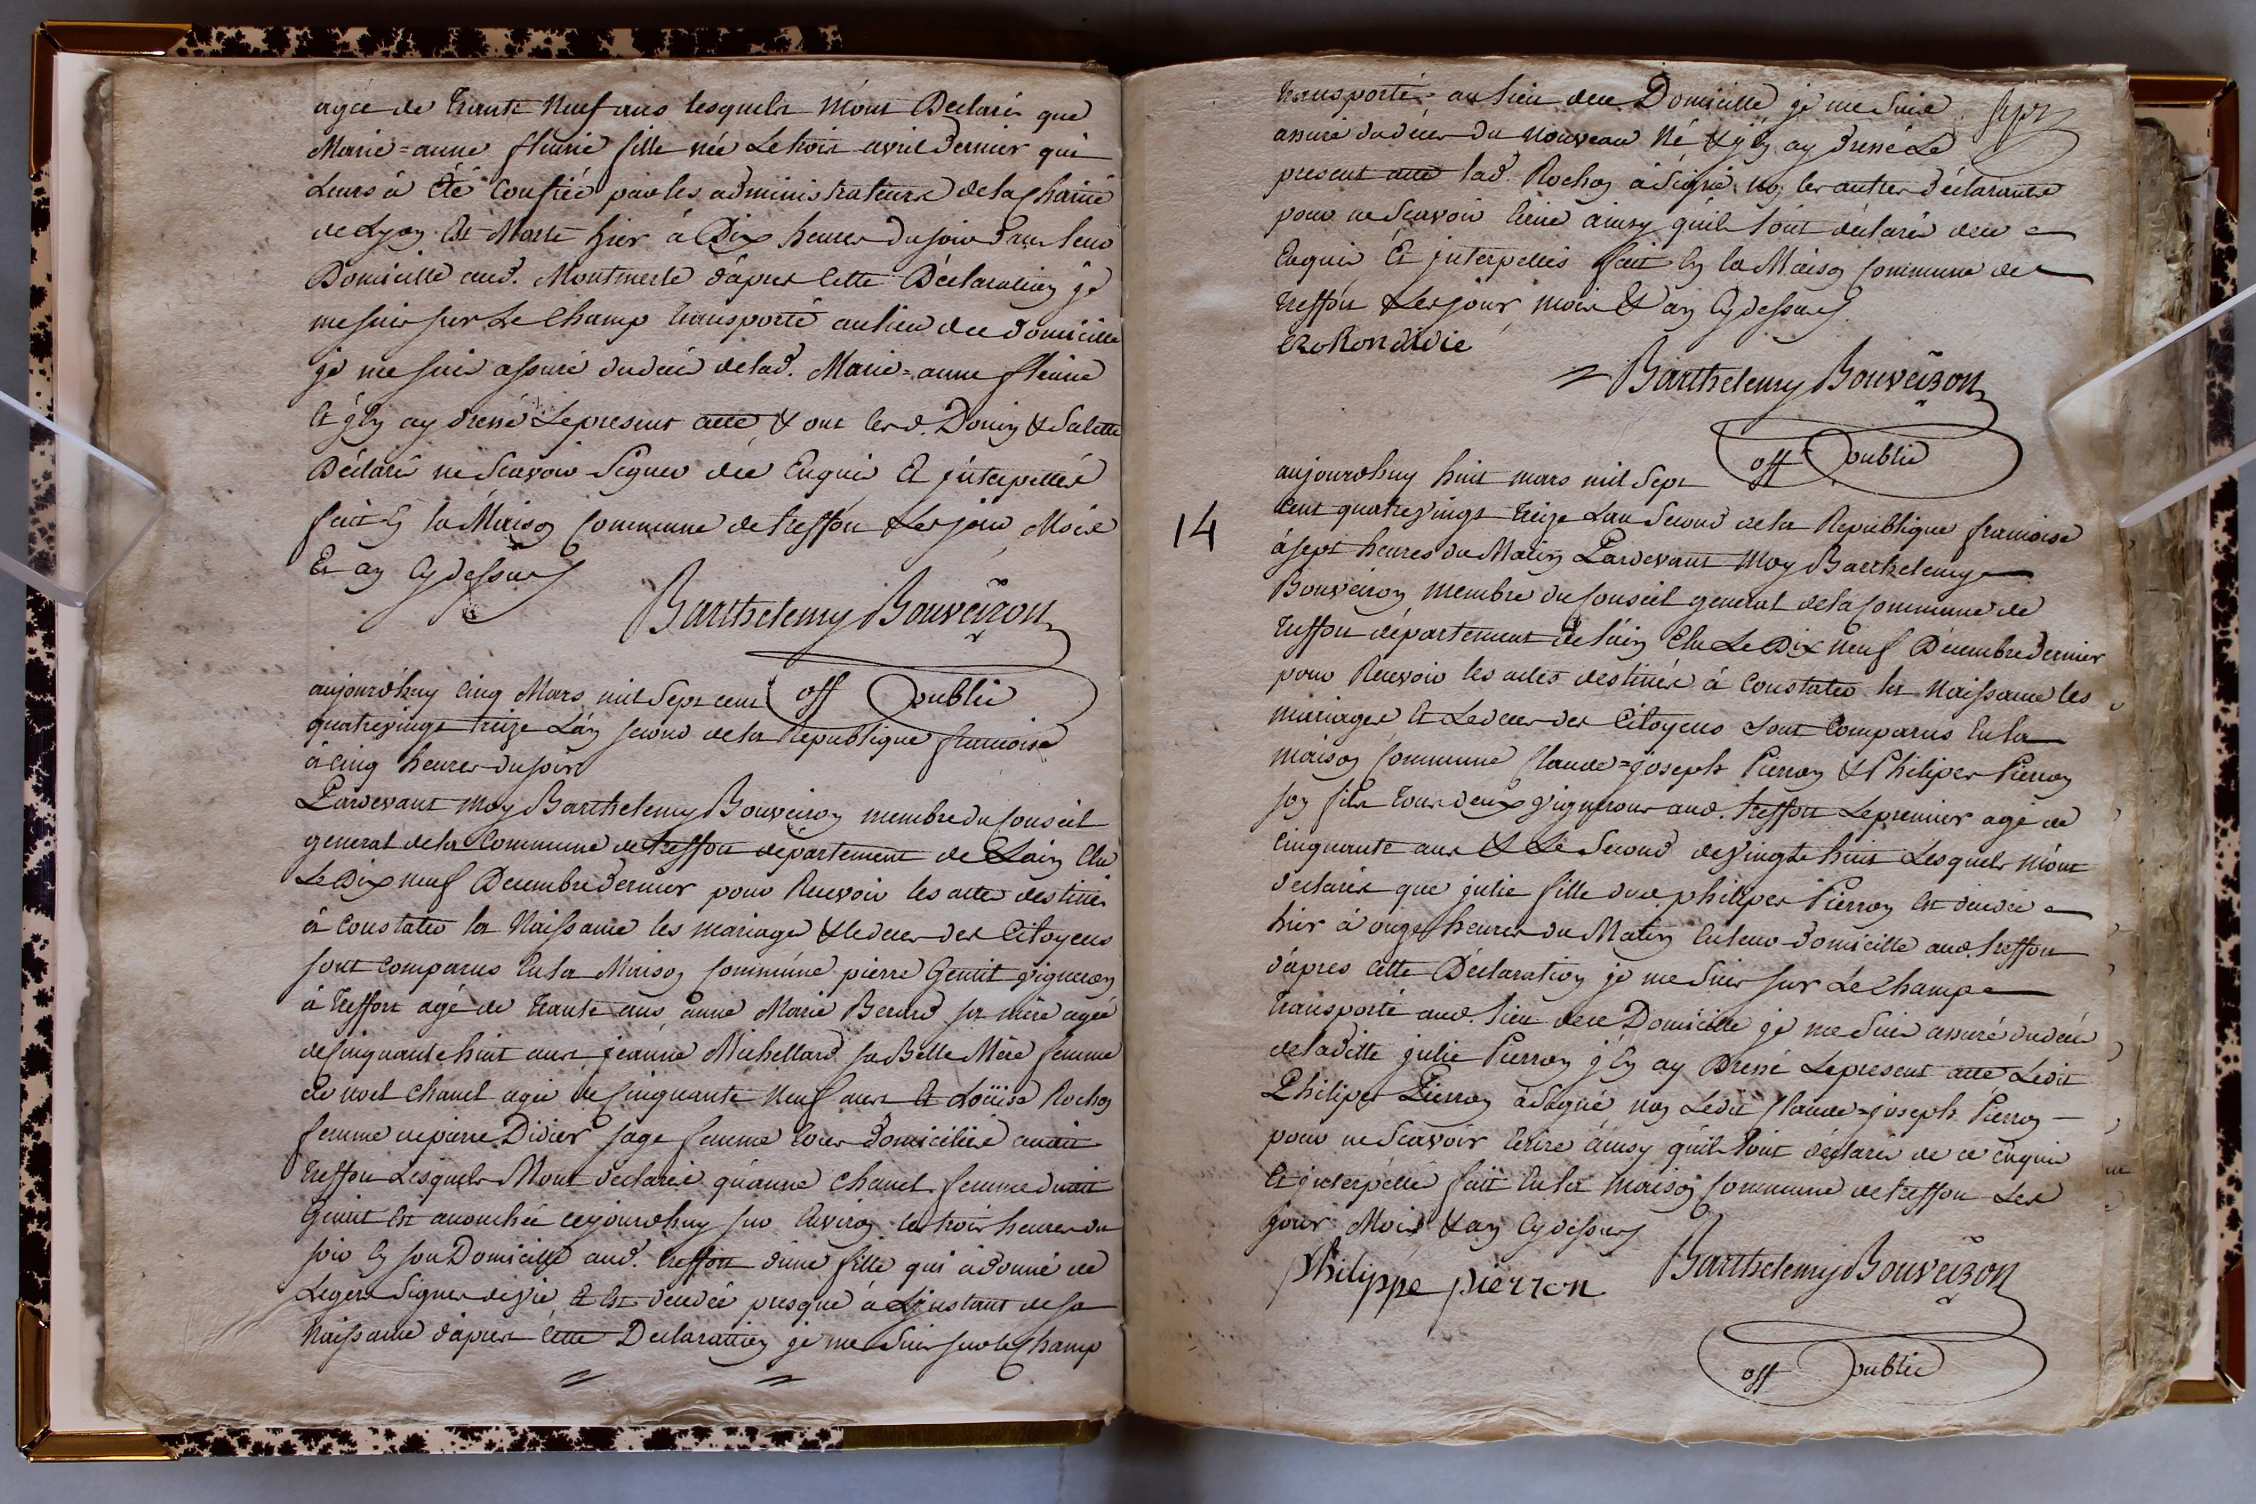 agée de Trante Neuf ans lesquels m'ont Declarés que
Marie=anne fleurie fille née Le trois avril Dernier qui
Leurs à Été Confiée par les administrateurs de la Charité
de Lyon Est Morte hier à Dix heures du soir dans leur
Domicille aud. Montmerle d'après Cette Déclaration je
me suis sur Le Champ transporté au lieu du domicille
je me suis assuré du décé de lad. Marie=anne fleurie
Et j'en ay dressé Le present acte & ont les d. Donin & Salette
Déclaré ne Scavoir Signer dee Enquis Et jnterpellés
fait En la Maison Commune de treffort Les jour Mois
Et an Cy dessus
Barthelemy Bouveiron
off public
aujourdhuy Cinq Mars mil Sept cent
quatrevingt treize L'an second de la Republique francoise
à Cinq heures du soir
Pardevant moy Barthelemy Bouveiron membre du Conseil
general de la Commune de treffort département de Lain Elu
Le Dix neuf Decembre dernier pour Recevoir les actes destinés
à Constater la Naissance les mariage & le deces des Citoyens
sont Comparus En la Maison Commune pierre Gentit vigneron
à treffort agé de trante ans anne Marie Berard sa mère agée
de Cinquante huit ans jeanne Michellard sa Belle Mère femme
de noel Chanel agée de Cinquante Neuf ans Et Loüise Rochon
femme de pierre Didier sage femme tous domiciliés audit
treffort Lesquels M'ont declaré qu'anne Chanel femme dudit
Gentit Est accouchée cejourdhuy sur Environ les trois heures du
soir En son Domicille aud. treffort d'une fille qui à donné de
Legers Signes de vie, Et Est decedée presque à L'jnstant de sa
Naissance d'après Cette Declaration je me Suis sur le Champ
transporté au lieu dee Domicille je me Suis
assuré du déces du nouveau Né & j'En ay Dressé Le
present acte lad. Rochon à Signé non les autres déclarants
pour ne Scavoir Ecrire ainsy qu'ils l'ont déclarés dee
Enquis Et jnterpellés fait En la Maison Commune de
treffort Les jour mois & an Cy dessus
Barthelemy Bouveiron
off public
14
aujourdhuy huit mars mil Sept
cent quatrevingt treize L'an Second de la Republique francoise
à sept heures du Matin Pardevant Moy Barthelemy
Bouveiron membre du Conseil general de la Commune de
treffort département de l'ain Elu Le Dix neuf Décembre dernier
pour Recevoir les actes destinés à Constater la Naissance les
mariages Et Le deces des Citoyens sont Comparus En la
maison Commune Claude=joseph Pierron & Philipes Pierron
son fils tous deux vignerons aud. treffort Le premier agé de
Cinquante ans & Le Second de vingt huit Lesquels m'ont
declarés que julie fille dud. philipes Pierron Est decedée
hier à onze heures du Matin En leur domicille aud. treffort
d'après Cette Déclaration je me Suis sur Le Champ
transporté aud. lieu dee Domicille je me Suis assuré du décé
de laditte julie Pierron j'En ay Dressé Le present acte Ledit
Philipes Pierron à Signé non Ledit Claude=joseph Pierron
pour ne Scavoir Ecrire ainsy qu'ils l'ont déclarés de ce Enquis
Et jnterpellé fait En la maison Commune de treffort Les
jour Mois & an Cy dessus
Philippe pierron Barthelemy Bouveiron
off public